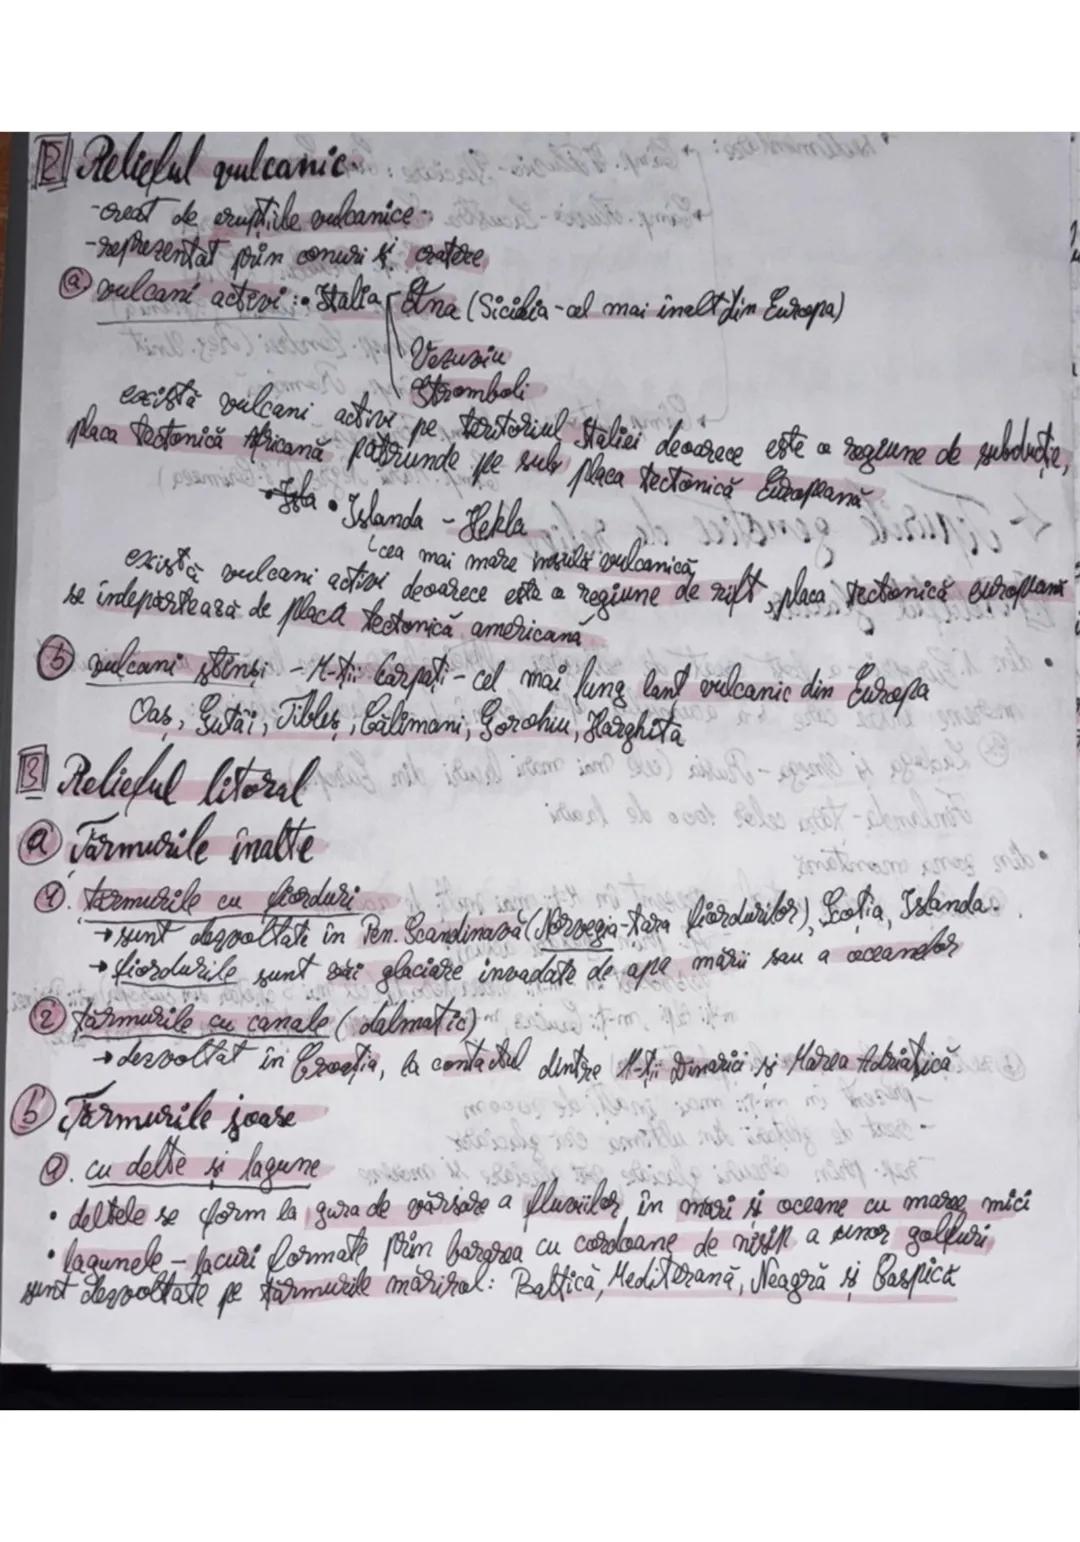 2 Relieful vulcanic
-creat de erupțiile vulcanice
-reprezentat prin conuri și cratere
a vulcani activi: • Italia Etna (Sicilia-cel mai înalt din Europa)
Vezuviu
Stromboli
există vulcani activi pe teritoriul Italiei deoarece este o regiune de subducție,
placa tectonică Africană pătrunde pe sub placa tectonică Europeană
• Islanda - Hekla
cea mai mare insulă vulcanică
există vulcani activi deoarece este o regiune de rift, placa tectonică europeană
se îndepărtează de placa tectonică americană
b vulcani stinși - M-ții Carpați - cel mai lung lanț vulcanic din Europa
Oaș, Gutâi, Țibleș, Călimani, Gurghiu, Harghita
3 Relieful litoral
a Țărmurile înalte
1. țărmurile cu fiorduri
→ sunt dezvoltate în Pen. Scandinavă (Norvegia-țara fiordurilor), Scoția, Islanda.
→ fiordurile sunt văi glaciare invadate de apa mării sau a oceanelor
2 țărmurile cu canale (dalmatic)
→ dezvoltat în Croația, la contactul dintre M-ții Dinarici și Marea Adriatică
b Țărmurile joase
a. cu delte și lagune
• deltele se form la gura de vărsare a fluviilor în mări și oceane cu maree mici
• lagunele - lacuri formate prin bararea cu cordoane de nisip a unor golfuri
sunt dezvoltate pe țărmurile mărirol: Baltică, Mediterană, Neagră și Caspică